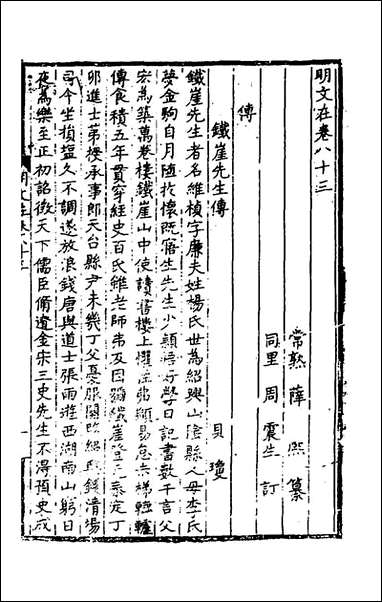 明文在卷八十三
常熟薛熙纂
同里周震生訂
傳
鐵崖先生傳
貝瓊
鐵崖先生者名維楨字廉夫姓楊氏世為紹興山陰縣人母李氏
夢金鉤自月隨於懷既寤生先生少穎悟好學日記書數千言父
宏為築萬卷樓鐵崖山中使讀書樓上懼其弗顓易怠去梯轆轤
傳食積五年貫穿經史百氏雖老師弗及因號鐵崖登泰定丁
卯進士第授承事郎天台縣尹未幾丁父憂服闋改紹興錢清場
司令坐損塩久不調遂放浪錢唐與道士張雨遊西湖南山躬日
夜為樂至正初詔徵天下儒臣脩遼金宋三史先生不得預史成
明文在卷八十三
一